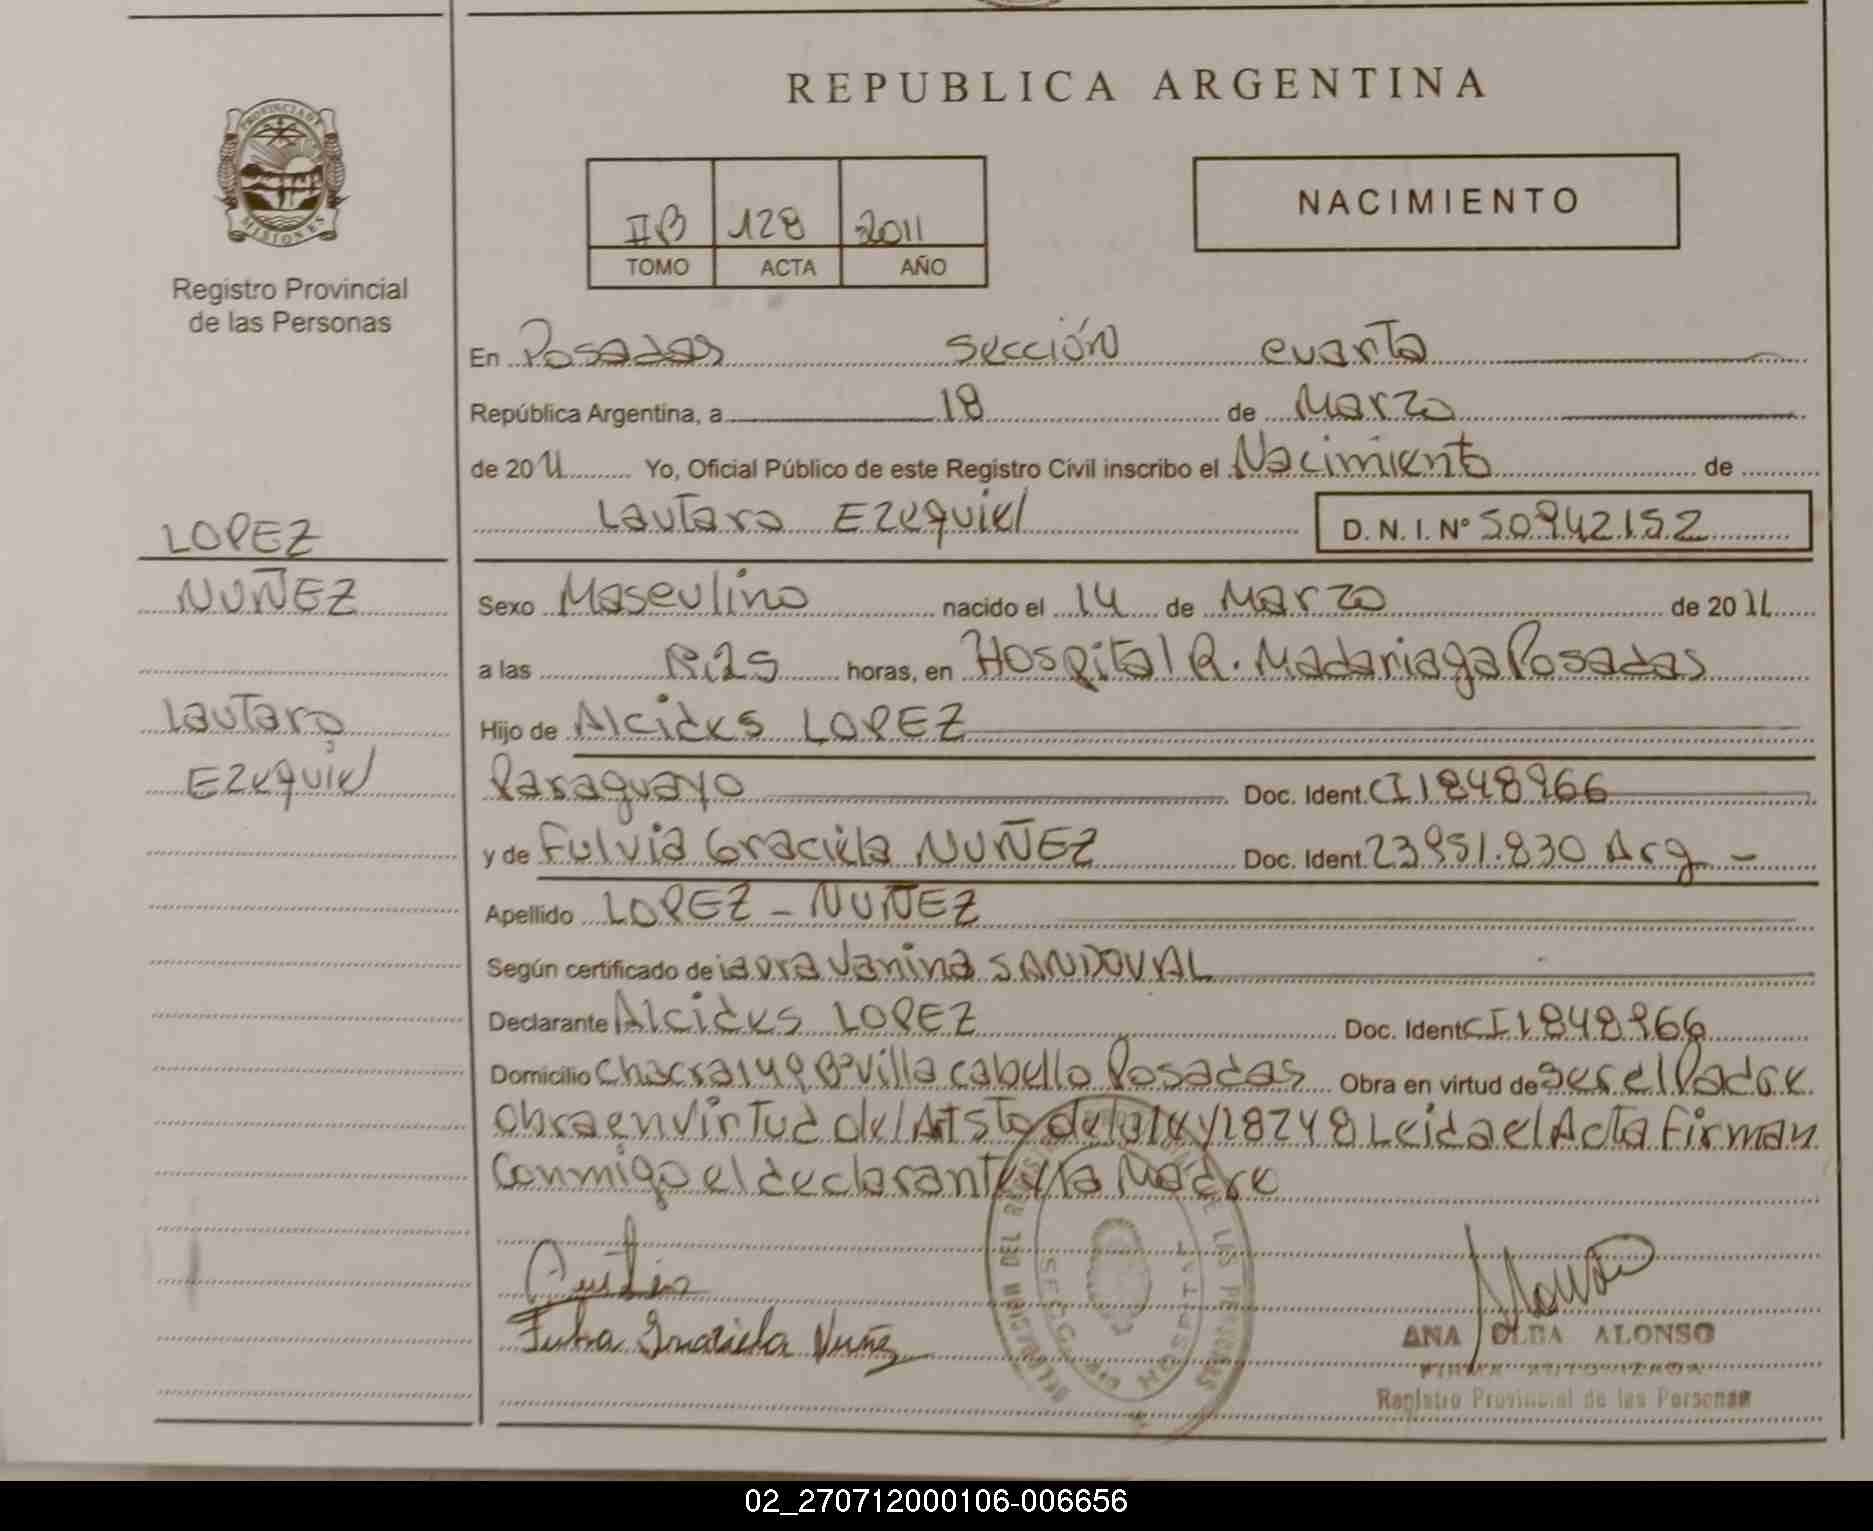 REPUBLICA ARGENTINA
PROVINCIA DE
MISIONES
Registro Provincial
de las Personas
IIB 128 2011
TOMO ACTA AÑO
NACIMIENTO
LOPEZ
NUÑEZ
Lautaro
Ezequiel
En Posadas sección cuarta
República Argentina, a 18 de Marzo
de 2011 Yo, Oficial Público de este Registro Civil inscribo el Nacimiento de
Lautaro Ezequiel D. N. I. Nº 50942152
Sexo Masculino nacido el 14 de Marzo de 2011
a las horas, en Hospital R. Madariaga Posadas
Hijo de Alcides LOPEZ
Paraguayo Doc. Ident. CI 1848966
y de Fulvia Graciela NUÑEZ Doc. Ident. 23951.830 Arg -
Apellido LOPEZ - NUÑEZ
Según certificado de la Dra Vanina SANDOVAL
Declarante Alcides LOPEZ Doc. Ident CI 1848966
Domicilio Chacra 149 Bº Villa Cabello Posadas Obra en virtud de ser el Padre
Obra en virtud del Art 5to de la ley 18248 Leida el Acta Firman
Conmigo el declarante y la Madre
Fulvia Graciela Nuñez
SECCION HOSPITAL
ANA OLGA ALONSO
FIRMA AUTORIZADA
Registro Provincial de las Personas
02_270712000106-006656